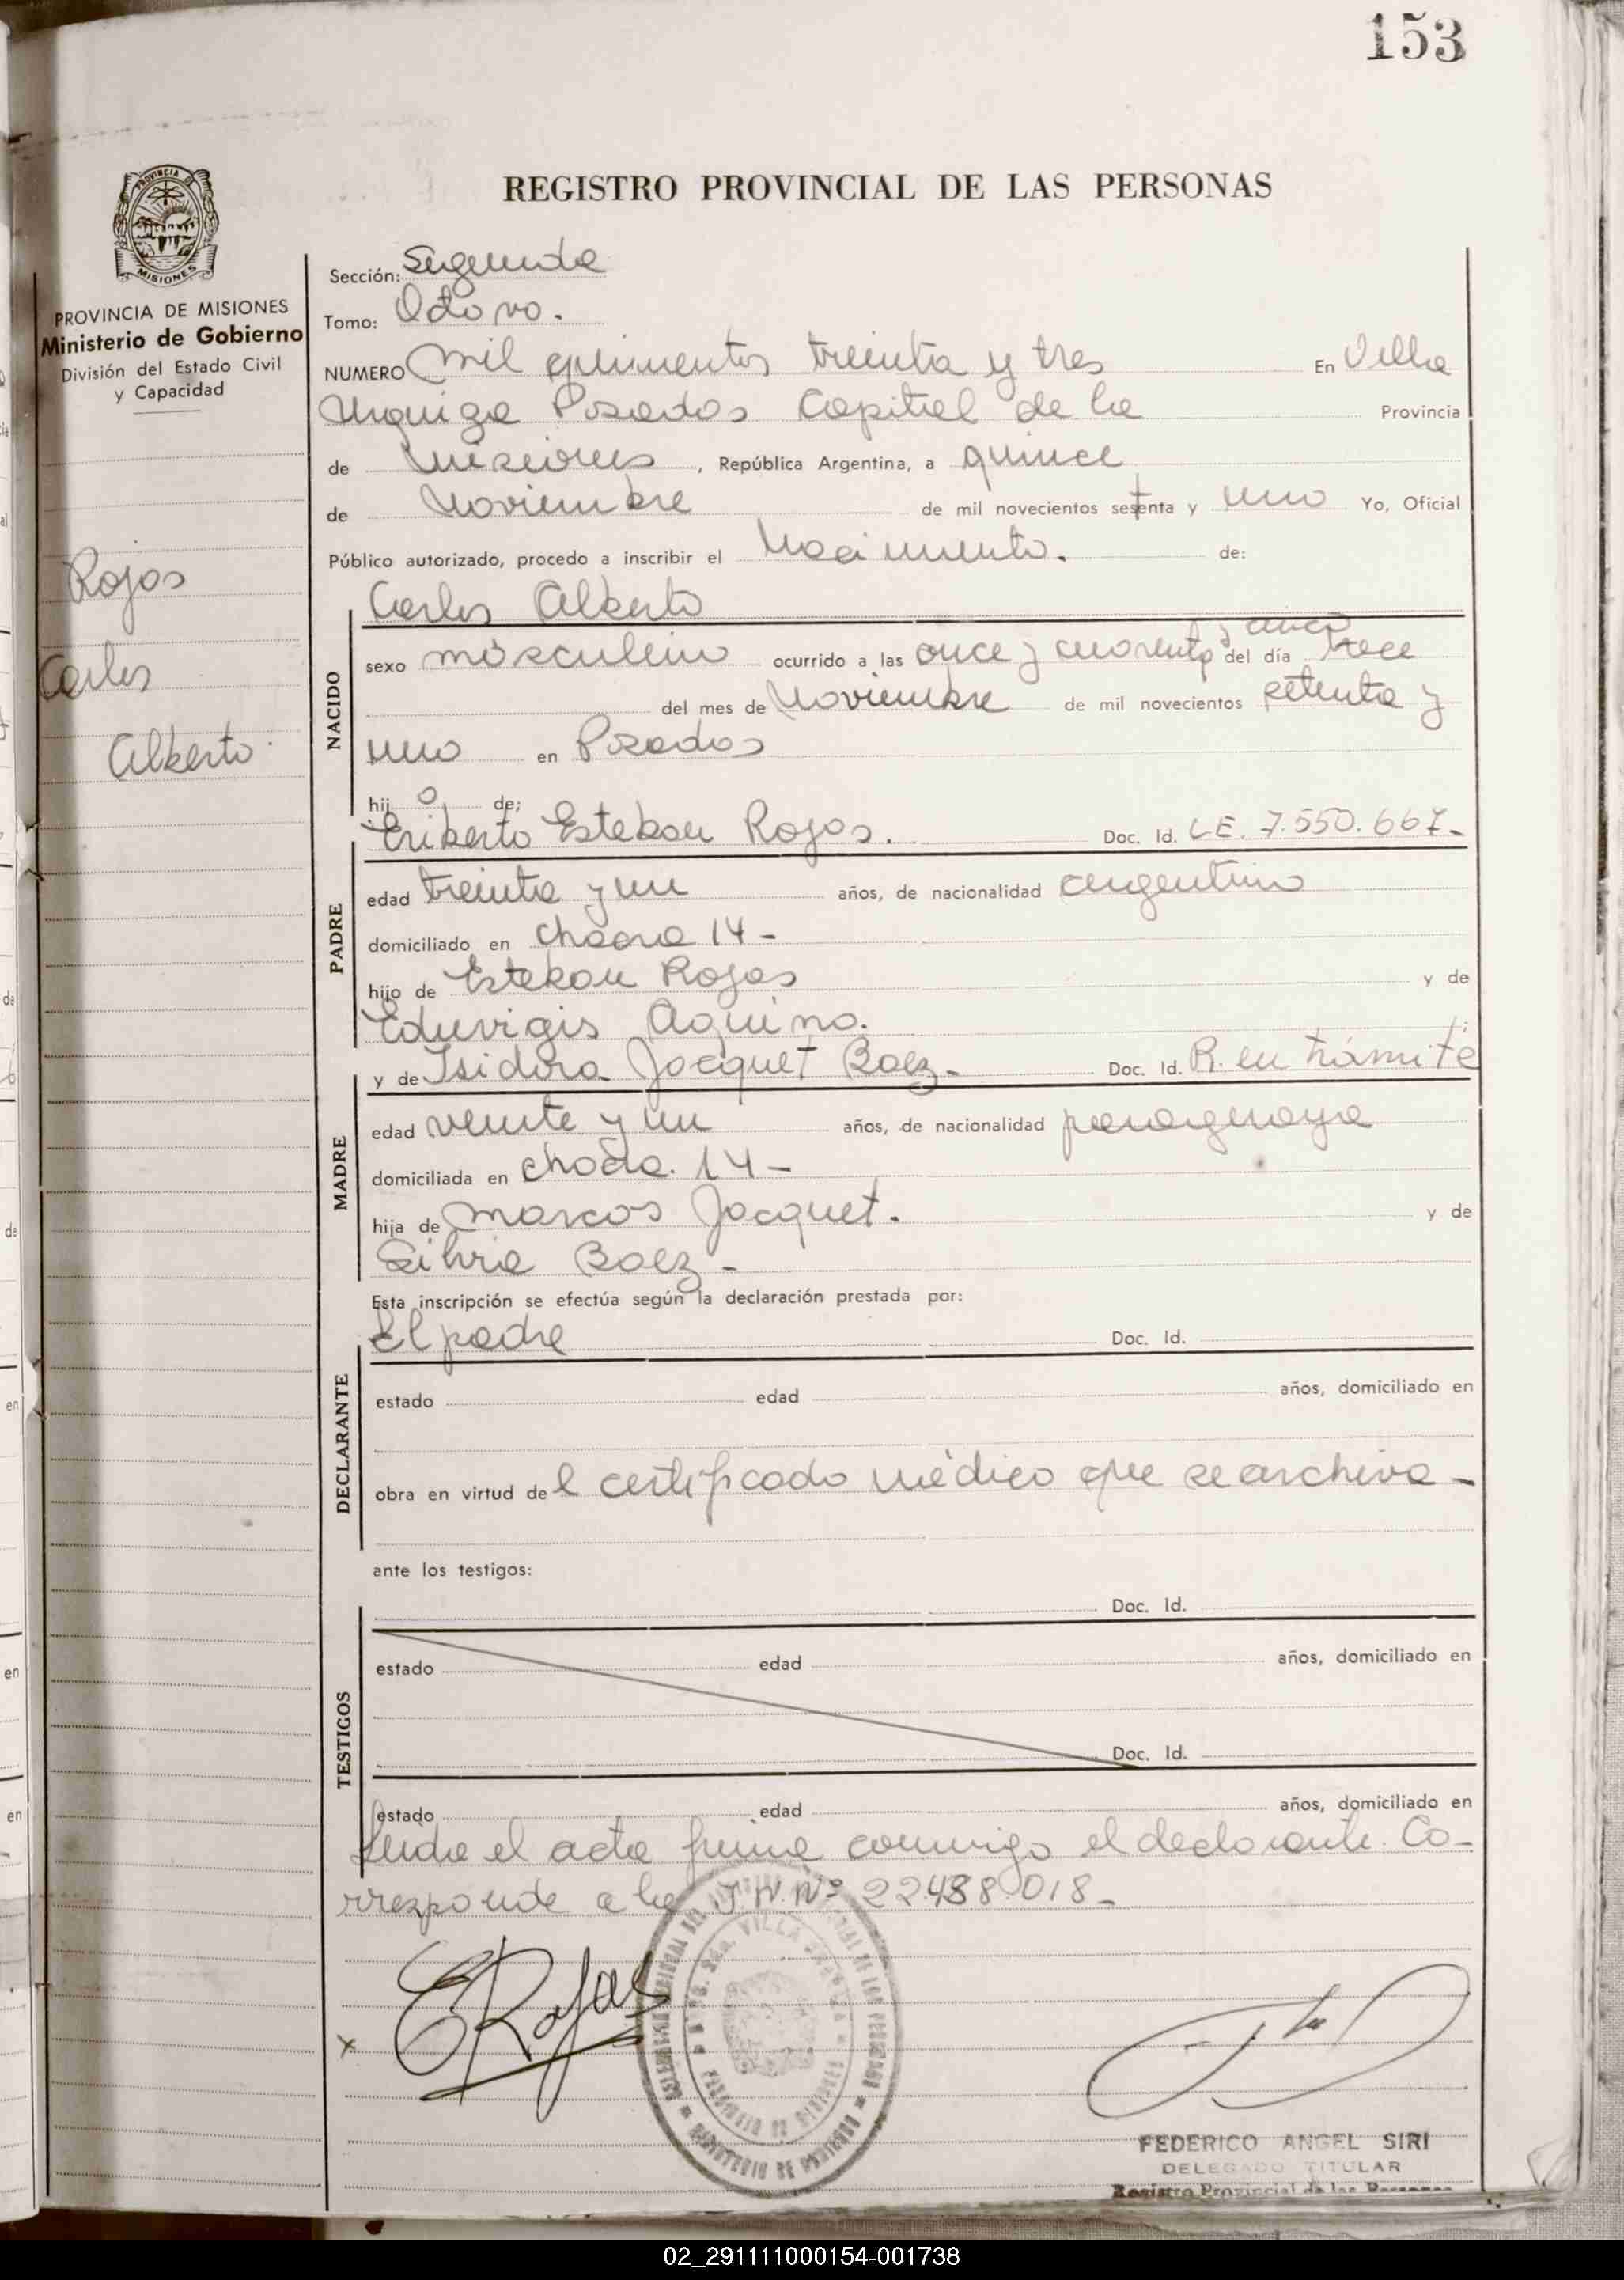 153
REGISTRO PROVINCIAL DE LAS PERSONAS
PROVINCIA DE
MISIONES
PROVINCIA DE MISIONES
Ministerio de Gobierno
División del Estado Civil
y Capacidad
Rojas
Carlos
Alberto
Sección: Segunda
Tomo: Octavo.
NUMERO mil quinientos treinta y tres En Villa
Urquiza Posadas Capital de la Provincia
de Misiones, República Argentina, a quince
de Noviembre de mil novecientos setenta y uno Yo, Oficial
Público autorizado, procedo a inscribir el Nacimiento. de:
Carlos Alberto
NACIDO
y cinco
sexo másculino ocurrido a las once y cuarenta del día trece
del mes de Noviembre de mil novecientos setenta y
uno en Posadas
hij o de;
Eriberto Esteban Rojas. Doc. Id. LE. 7.550.667.-
PADRE
edad treinta y un años, de nacionalidad argentino
domiciliado en chacra 14-
hijo de Esteban Rojas y de
Eduvigis Aquino.
y de Isidora Jacquet Baez- Doc. Id. R. en trámite
MADRE
edad veinte y un años, de nacionalidad paraguaya
domiciliada en chacra. 14-
hija de Marcos Jacquet. y de
Silvia Baez-
Esta inscripción se efectúa según la declaración prestada por:
El padre Doc. Id.
DECLARANTE
estado edad años, domiciliado en
obra en virtud del certificado médico que se archiva-
ante los testigos:
Doc. Id.
TESTIGOS
estado edad años, domiciliado en
Doc. Id.
estado edad años, domiciliado en
Leída el acta firma conmigo el declarante. Co-
rresponde a la Nº 22.488.018-
E Rojas
FEDERICO ANGEL SIRI
DELEGADO TITULAR
Registro Provincial de las Personas
02_291111000154-001738